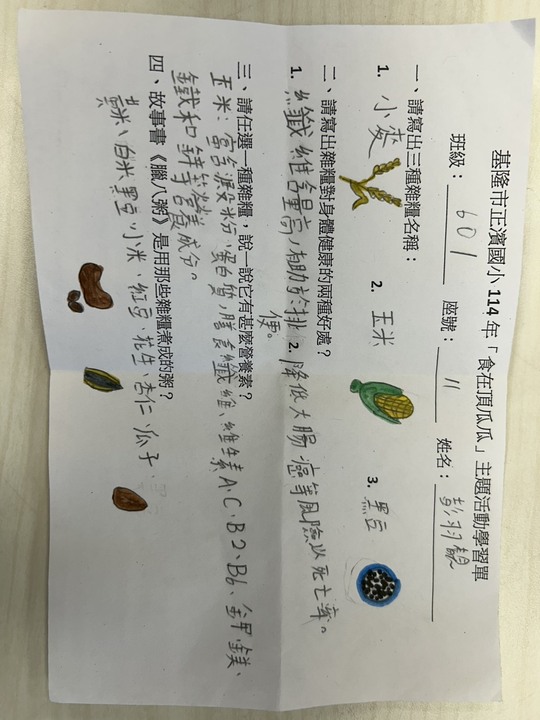 基隆市正濱國小114年「食在頂瓜瓜」主題活動學習單
班級：601 座號：11 姓名：彭羽
一、請寫出三種雜糧名稱：
1. 小麥 2. 玉米 3. 黑豆
二、請寫出雜糧對身體健康的兩種好處？
1. 纖維含量高，輔助於排便。 2. 降低大腸癌等風險以死亡率。
三、請任選一種雜糧，說一說它有甚麼營養素？
玉米：富含澱粉、蛋白質，膳食纖維、維生素A、C、B2、B6、鉀、鎂、
鐵和鋅等營養成分。
四、故事書《臘八粥》是用那些雜糧煮成的粥？
米、白米、黑豆、小米、紅豆、花生、杏仁、瓜子、